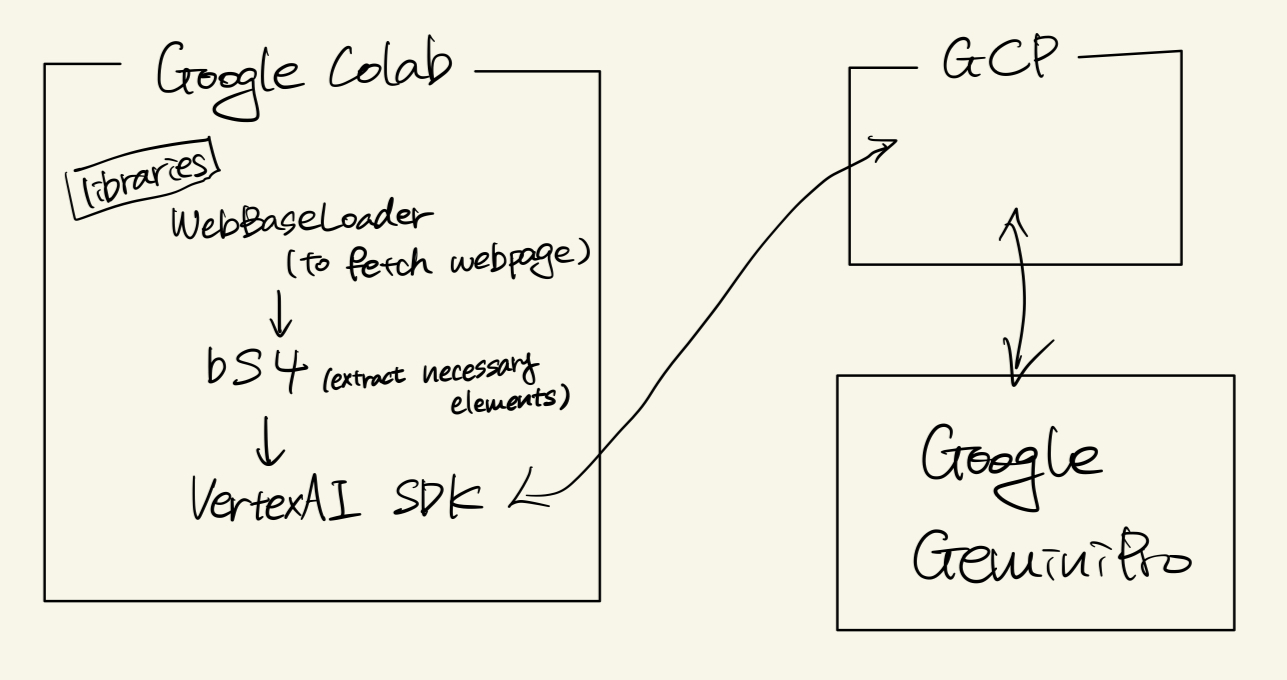 Google Colab
libraries
WebBaseLoader
(to fetch webpage)
bs4 (extract necessary
elements)
VertexAI SDK
GCP
Google
GeminiPro